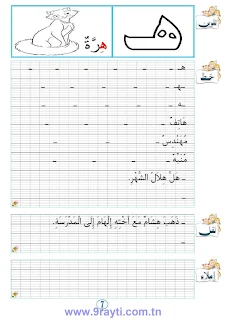 ه
هِرَّةٌ
هـ - - - - -
ـهـ - - - - -
ـه - - - - -
هَاتِفٌ -
مُهَنْدِسٌ -
مُنَبِّهٌ -
ـ هَلَّ هِلَالُ الشَّهْرِ.
ـ ذَهَبَ هِشَامُ مَعَ أُخْتِهِ إِلْهَامَ إِلَى الْمَدْرَسَةِ.
خط
إملاء
1
www.9rayti.com.tn